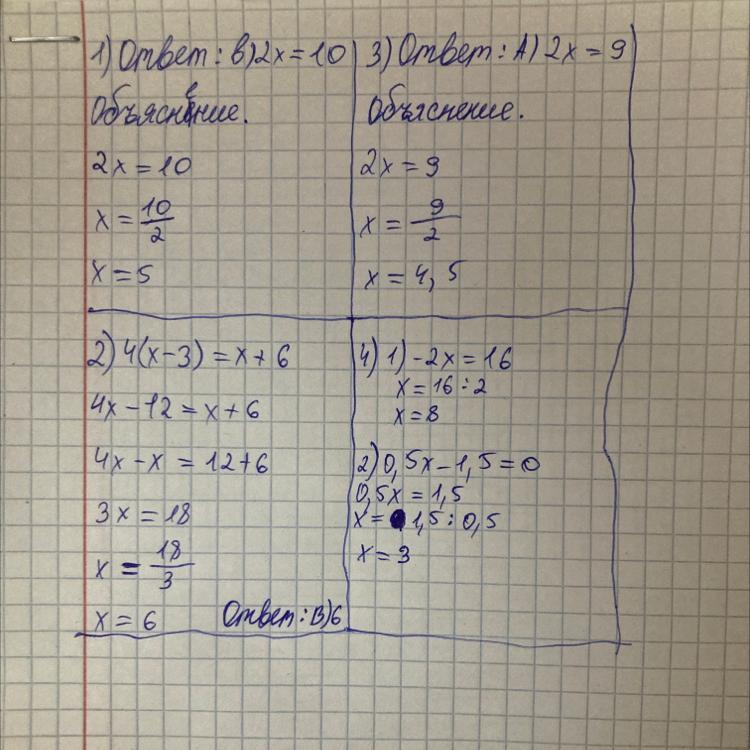 1) Ответ: в) 2x = 10
Объяснение.
2x = 10
x = 10/2
x = 5
2) 4(x-3) = x + 6
4x - 12 = x + 6
4x - x = 12 + 6
3x = 18
x = 18/3
x = 6 Ответ: В) 6
3) Ответ: А) 2x = 9
Объяснение.
2x = 9
x = 9/2
x = 4,5
4) 1) -2x = 16
x = 16 : 2
x = 8
2) 0,5x - 1,5 = 0
0,5x = 1,5
x = 1,5 : 0,5
x = 3